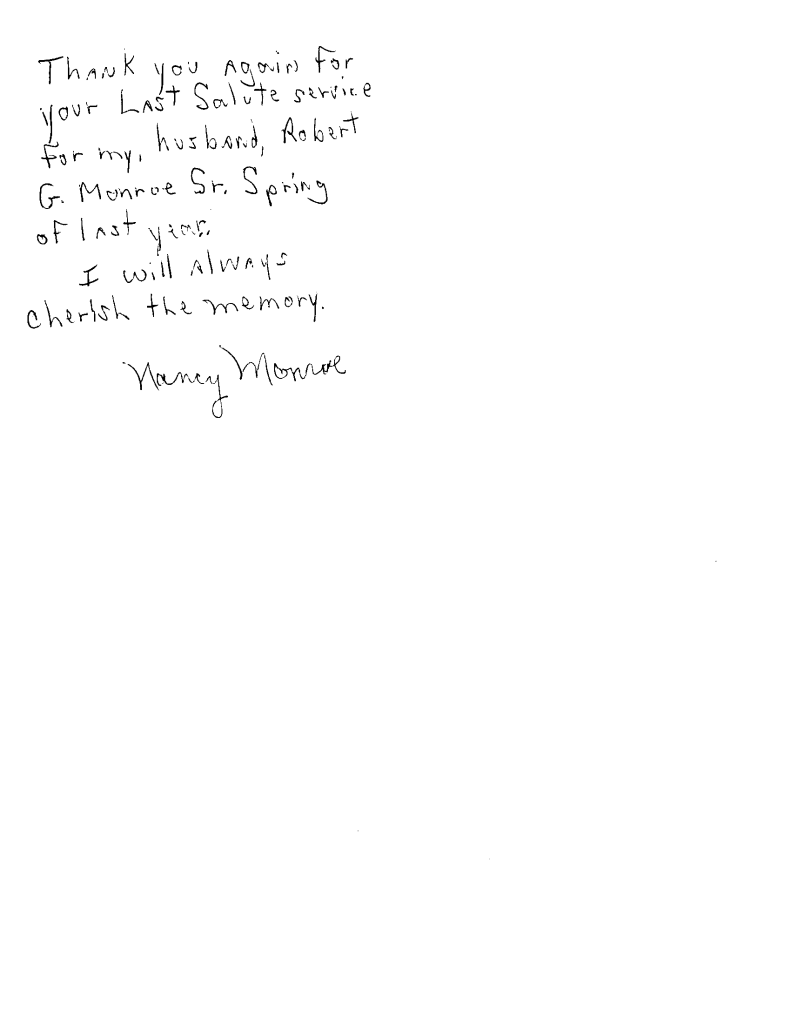 Thank you again for
your Last Salute service
for my, husband, Robert
G. Monroe Sr. Spring
of last year.
I will always
cherish the memory.
Nancy Monroe